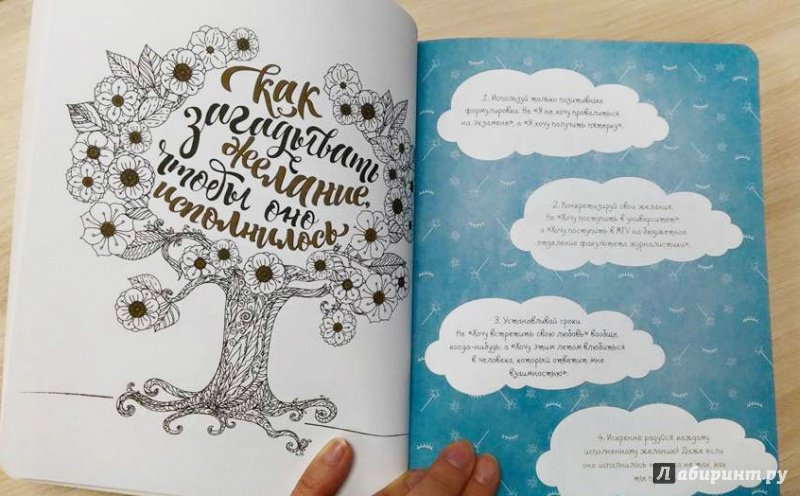 Как
загадывать
желание,
чтобы оно
исполнилось
1. Используй только позитивные
формулировки. Не «Я не хочу провалиться
на экзамене», а «Я хочу получить пятёрку».
2. Конкретизируй свои желания.
Не «Хочу поступить в университет»,
а «Хочу поступить в МГУ на бюджетное
отделение факультета журналистики».
3. Устанавливай сроки.
Не «Хочу встретить свою любовь» вообще,
когда-нибудь, а «Хочу этим летом влюбиться
в человека, который ответит мне
взаимностью».
4. Искренне радуйся каждому
исполненному желанию! Даже если
оно исполнилось не так, как
Лабиринт.ру